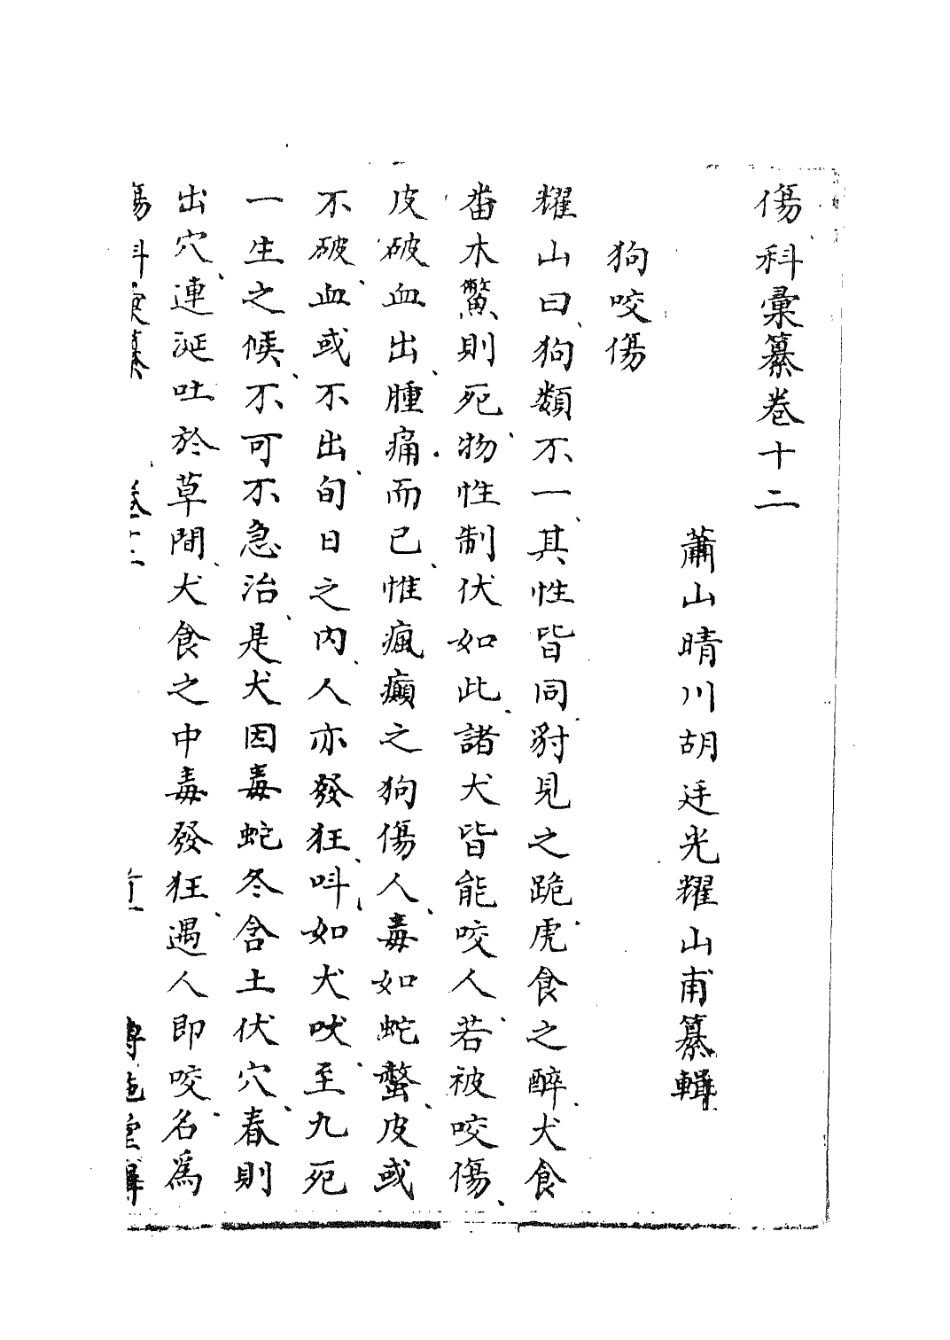 傷科彙纂卷十二
蕭山晴川胡廷光耀山甫纂輯
狗咬傷
耀山曰狗類不一其性皆同豺見之跪虎食之醉犬食
番木鱉則死物性制伏如此諸犬皆能咬人若被咬傷
皮破血出腫痛而已惟瘋癲之狗傷人毒如蛇螫皮或
不破血或不出旬日之內人亦發狂叫如犬吠至九死
一生之候不可不急治是犬因毒蛇冬含土伏穴春則
出穴連涎吐於草間犬食之中毒發狂遇人即咬名為
傷科彙纂 卷十二